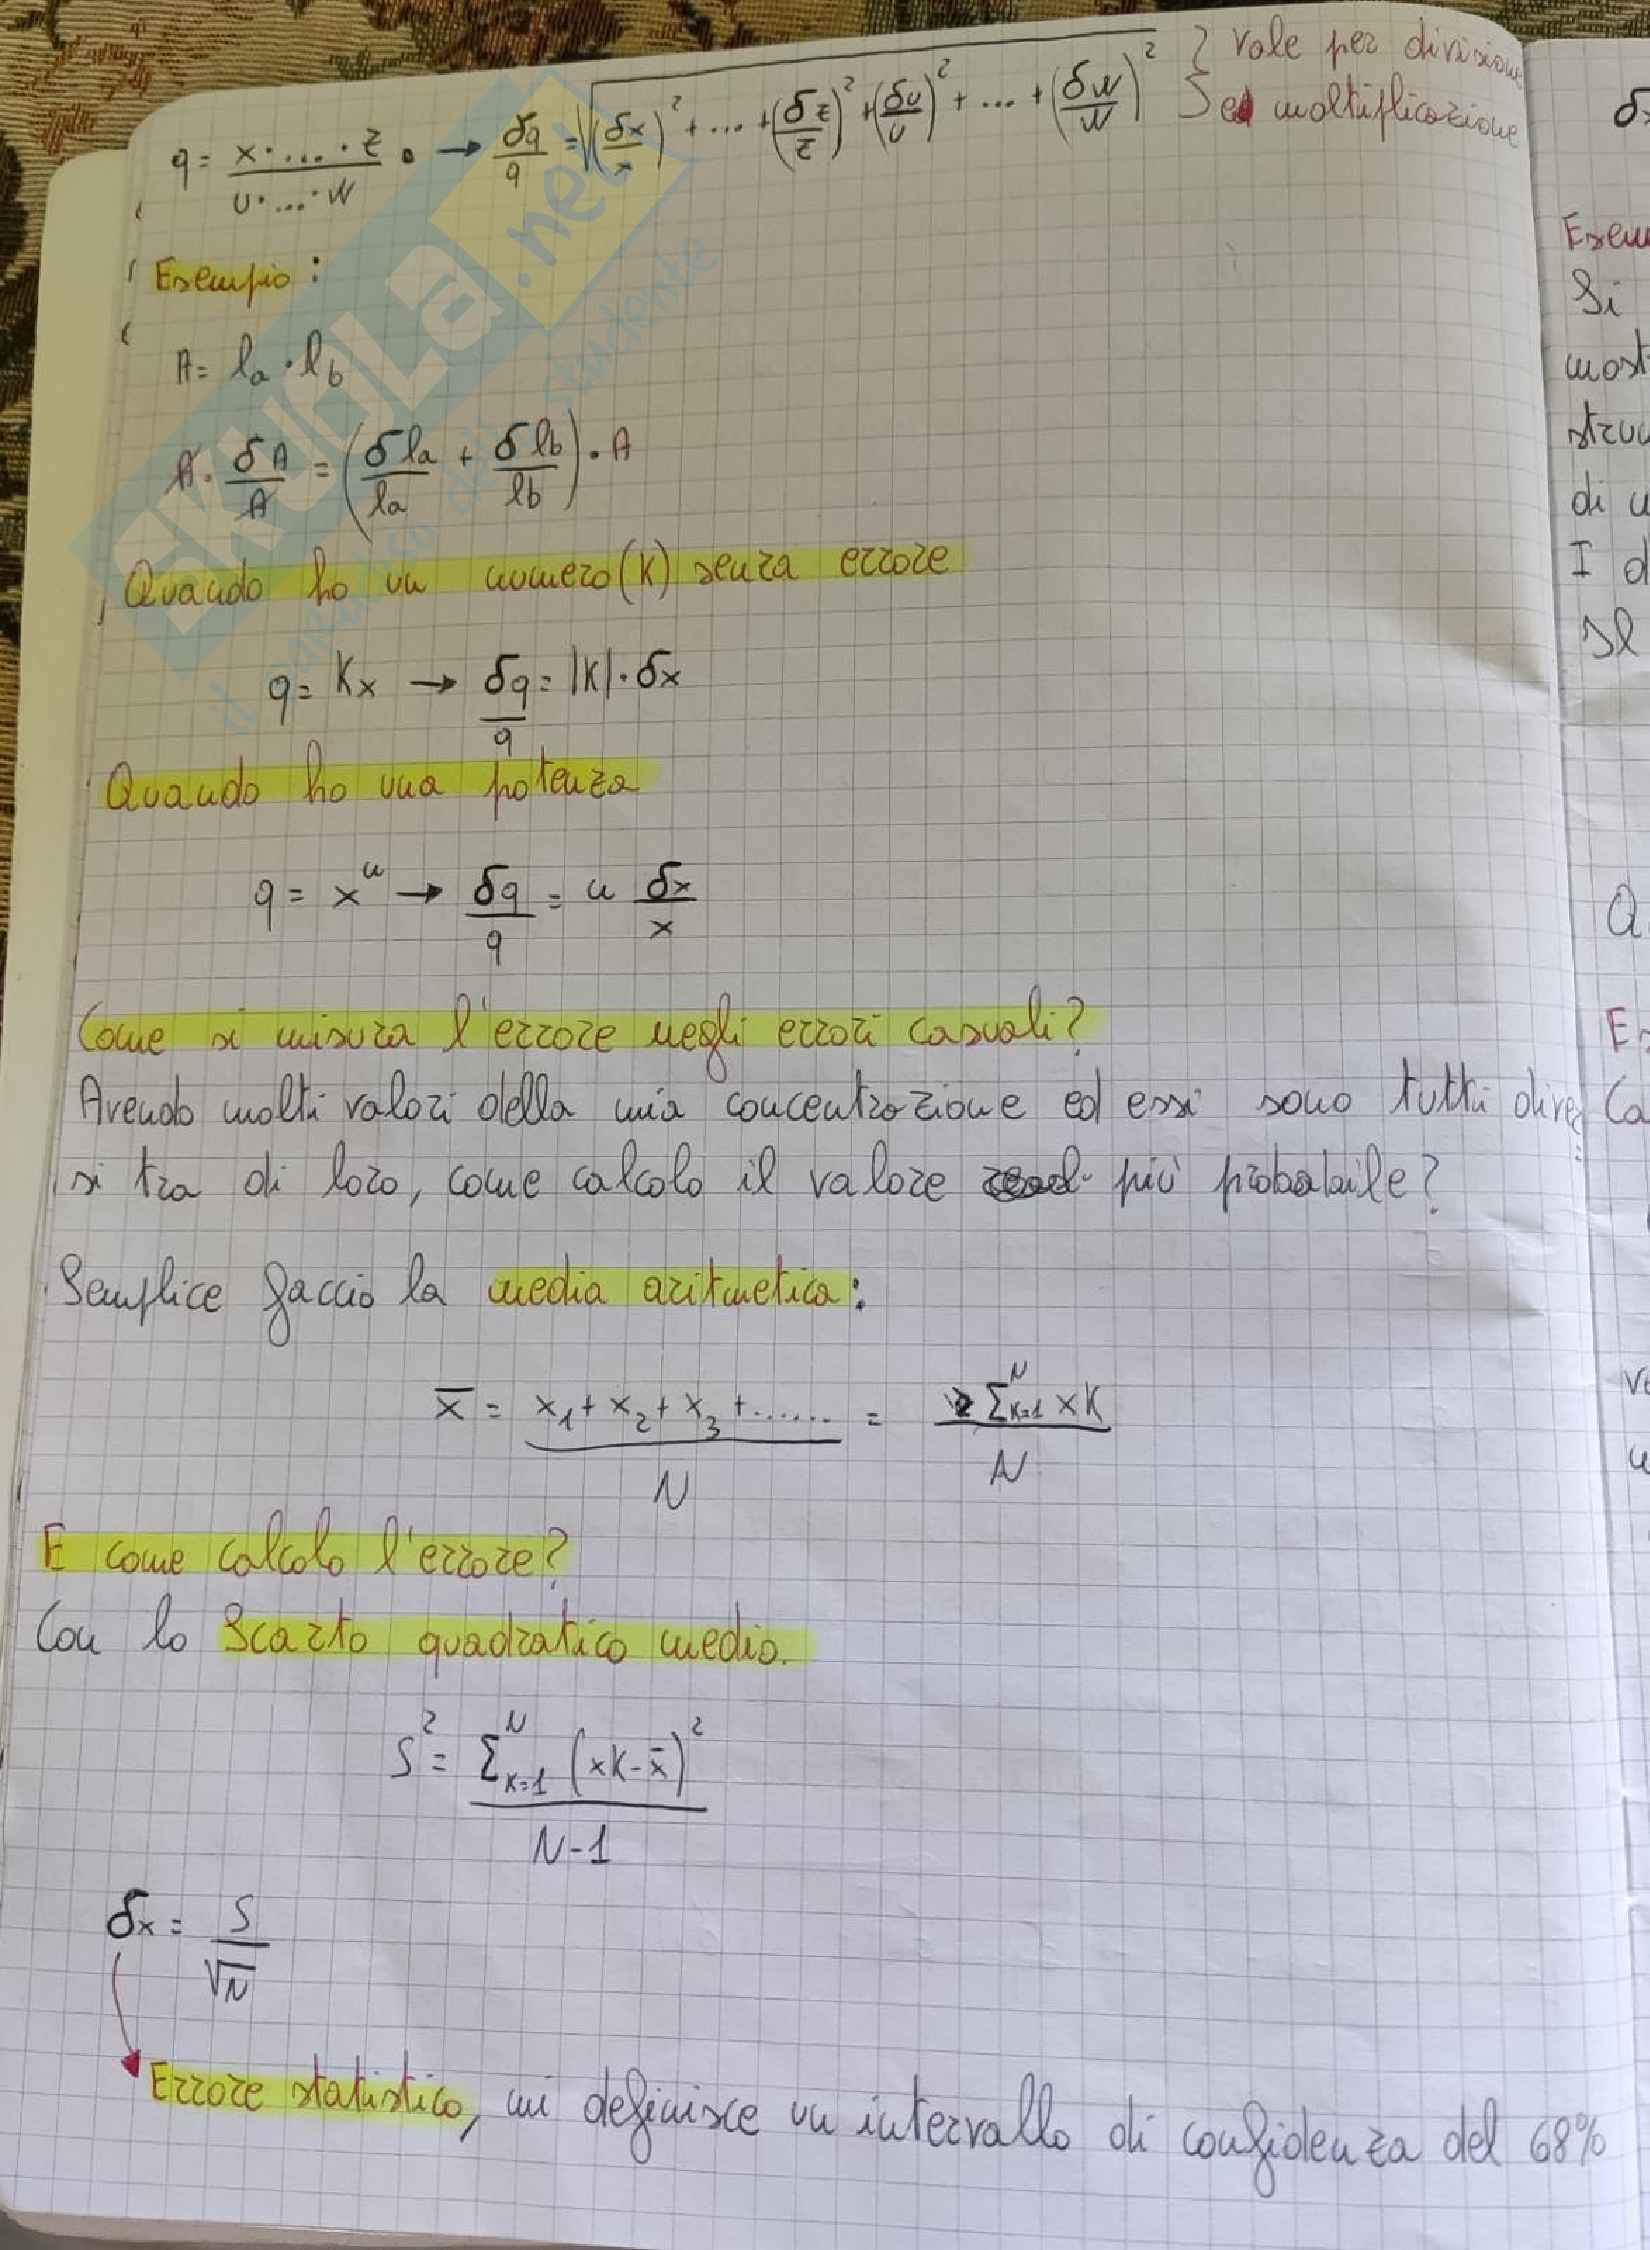 q = x·....·z / u·...·w → δq/q = √((δx/x)² + ... + (δz/z)² + (δu/u)² + ... + (δw/w)²) } vale per divisione
ed moltiplicazione
Esempio:
A = la · lb
A · δA/A = (δla/la + δlb/lb) · A
Quando ho un numero (K) senza errore
q = Kx → δq/q = |K| · δx
Quando ho una potenza
q = xⁿ → δq/q = n δx/x
Come si misura l'errore negli errori casuali?
Avendo molti valori della mia concentrazione ed essi sono tutti diver
si tra di loro, come calcolo il valore più probabile?
Semplice faccio la media aritmetica:
x̄ = x₁ + x₂ + x₃ + ...... / N = Σᴺₖ₌₁ xK / N
E come calcolo l'errore?
Con lo Scarto quadratico medio.
S² = Σᴺₖ₌₁ (xK - x̄)² / N-1
δx = S / √N
Errore statistico, mi definisce un intervallo di confidenza del 68%
SKUOLA.net
il paradiso dello studente
δx
Esem
Si
most
stru
di u
I d
Sl
Q
Es
Ca